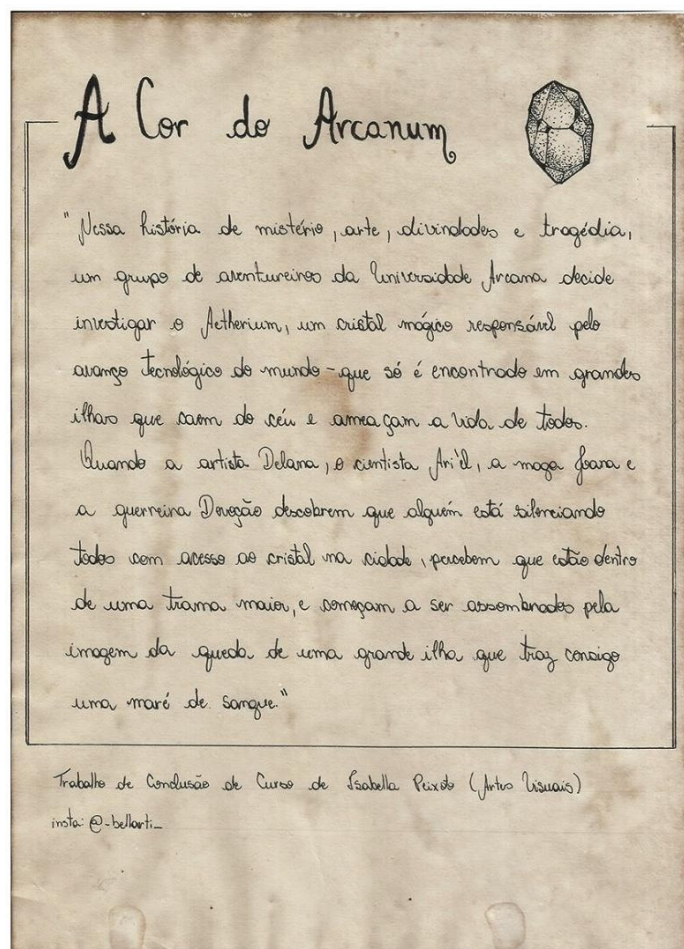 A Cor do Arcanum
"Nessa história de mistério, arte, divindades e tragédia,
um grupo de aventureiros da Universidade Arcana decide
investigar o Aetherium, um cristal mágico responsável pelo
avanço tecnológico do mundo - que só é encontrado em grandes
ilhas que caem do céu e ameaçam a vida de todos.
Quando a artista Delana, o cientista Ari'el, a maga Joana e
a guerreira Devoção descobrem que alguém está silenciando
todos com acesso ao cristal na cidade, percebem que estão dentro
de uma trama maior, e começam a ser assombrados pela
imagem da queda de uma grande ilha que traz consigo
uma maré de sangue."
Trabalho de Conclusão de Curso de Isabella Peixoto (Artes Visuais)
insta: @-bellarti_